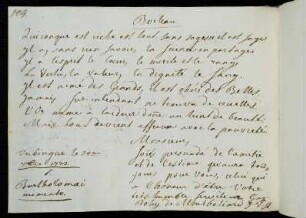 104.
Boileau
Quiconque est riche est tout sans sagesse il est sage
Il a, sans rien savoir, la science en partage
Il a l'esprit le cœur, le merite et le rang,
La Vertu, la Valeur, la dignité le sang,
Il est aimé des Grands, il est chéri des Belles
Jamais Sur-intendant ne trouva de cruelles.
L'Or même à laideur donne un teint de beauté
Mais tout devient affreux avec la pauvreté
Monsieur,
Tubingue le
Bartholomai
persuadé de l'amitié
et de l'estime qu'aura
jours pour Vous, celui qui
a l'honneur d'être Votre
très humble serviteur